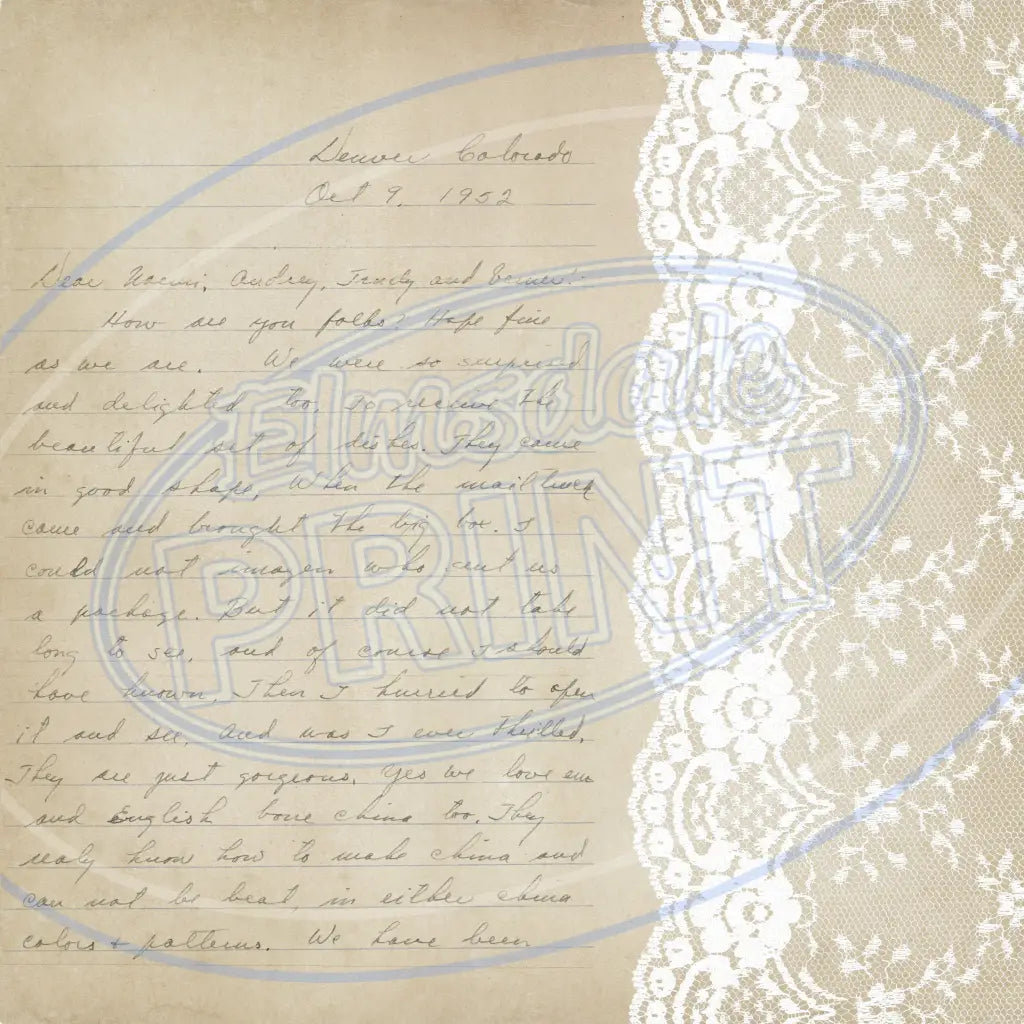 Denver Colorado
Oct 9, 1952
Dear Naomi, Audrey, Trudy and
How are you folks? Hope fine
as we are. We were so surprised
and delighted too, to receive the
beautiful set of dishes. They came
in good shape, When the mail truck
came and brought the big box. I
could not imagen who sent us
a package. But it did not take
long to see, and of course I should
have known, Then I hurried to open
it and see, and was I ever thrilled,
They are just gorgeous, yes we love em
and English bone china too. They
realy know how to make china and
can not be beat, in either china
colors + patterns. We have been
Elmsdale
PRINT